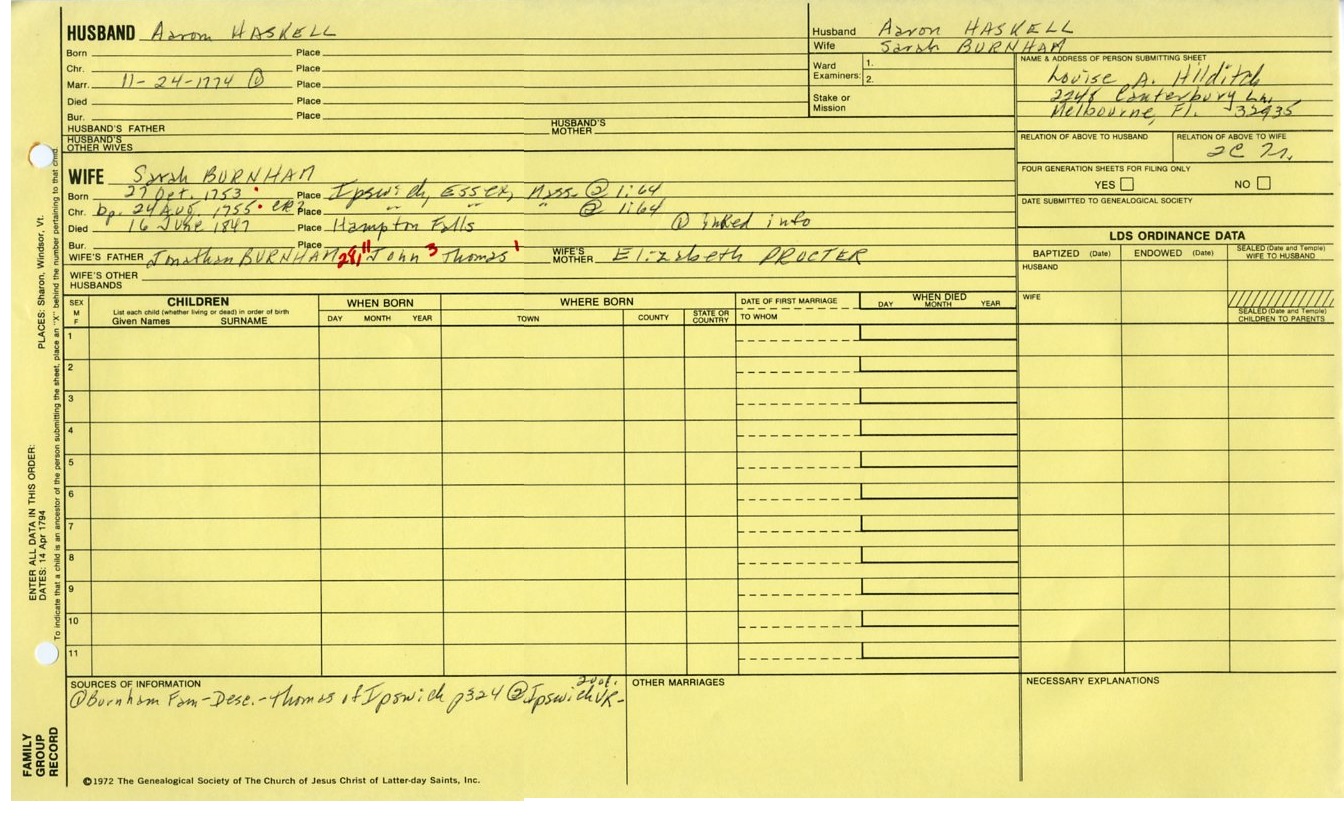 HUSBAND Aaron HASKELL
Born Place
Chr. Place
Marr. 11-24-1774 ① Place
Died Place
Bur. Place
HUSBAND'S FATHER HUSBAND'S MOTHER
HUSBAND'S OTHER WIVES
Husband Aaron HASKELL
Wife Sarah BURNHAM
Ward Examiners: 1.
2.
Stake or Mission
NAME & ADDRESS OF PERSON SUBMITTING SHEET
Louise A. Hilditch
2248 Canterbury Ln.
Melbourne, Fl. 32935
RELATION OF ABOVE TO HUSBAND RELATION OF ABOVE TO WIFE
2C
FOUR GENERATION SHEETS FOR FILING ONLY
YES NO
DATE SUBMITTED TO GENEALOGICAL SOCIETY
WIFE Sarah BURNHAM
Born 27 Oct. 1753 Place Ipswich, Essex, Mass. ② 1:64
Chr. bp. 24 Aug. 1755 CR2 Place " " ② 1:64
Died 16 June 1847 Place Hampton Falls ① inked info
Bur. Place
WIFE'S FATHER Jonathan BURNHAM 28, 11 John 3 Thomas 1 WIFE'S MOTHER Elizabeth PROCTER
WIFE'S OTHER HUSBANDS
LDS ORDINANCE DATA
BAPTIZED (Date) ENDOWED (Date) SEALED (Date and Temple) WIFE TO HUSBAND
HUSBAND
WIFE
SEALED (Date and Temple) CHILDREN TO PARENTS
SEX M F
CHILDREN
List each child (whether living or dead) in order of birth
Given Names SURNAME
WHEN BORN
DAY MONTH YEAR
WHERE BORN
TOWN COUNTY STATE OR COUNTRY
DATE OF FIRST MARRIAGE
TO WHOM
WHEN DIED
DAY MONTH YEAR
1
2
3
4
5
6
7
8
9
10
11
SOURCES OF INFORMATION
2 vol.
①Burnham Fam-Desc.-Thomas of Ipswich p324 ②Ipswich VR-
OTHER MARRIAGES
NECESSARY EXPLANATIONS
©1972 The Genealogical Society of The Church of Jesus Christ of Latter-day Saints, Inc.
FAMILY GROUP RECORD
ENTER ALL DATA IN THIS ORDER:
DATES: 14 Apr 1794
PLACES: Sharon, Windsor, Vt.
To indicate that a child is an ancestor of the person submitting the sheet, place an "X" behind the number pertaining to that child.